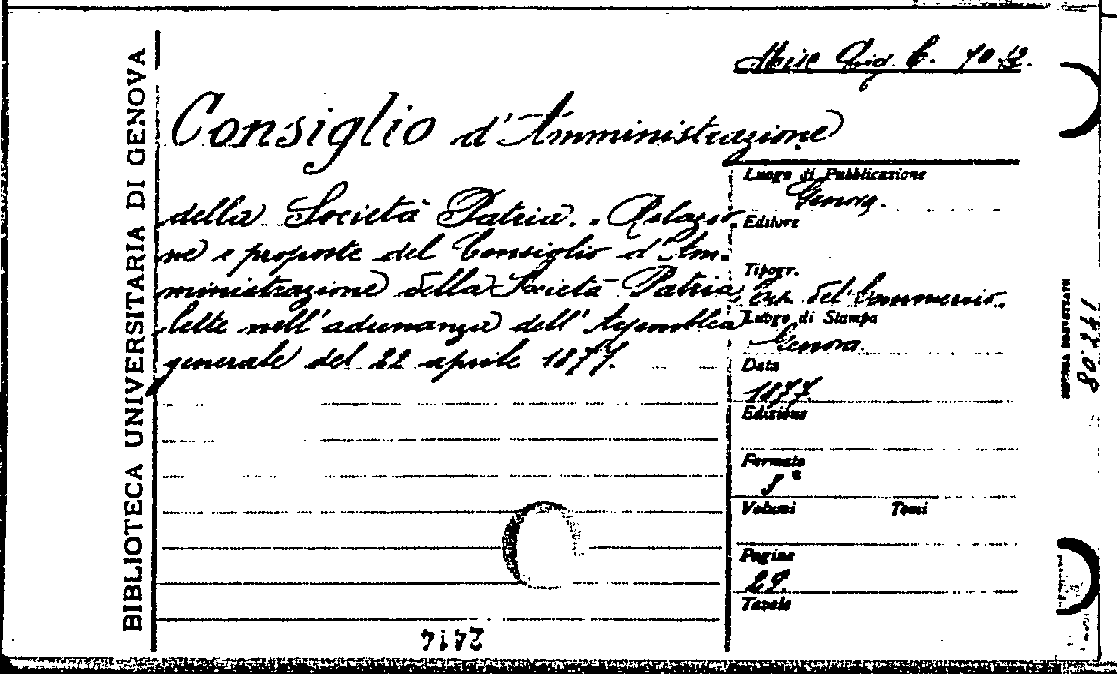 Misc Lig. C. 70 12.
BIBLIOTECA UNIVERSITARIA DI GENOVA
Consiglio d'Amministrazione
della Società Patria. - Relazio-
ne e proposte del Consiglio d'Am-
ministrazione della Società Patria
lette nell'adunanza dell'Assemblea
generale del 22 aprile 1877.
Luogo di Pubblicazione
Genova.
Editore
Tipogr.
del Commercio.
Luogo di Stampa
Genova.
Data
1877
Edizione
Formato
8°
Volumi Tomi
Pagine
29.
Tavole
80241
2414